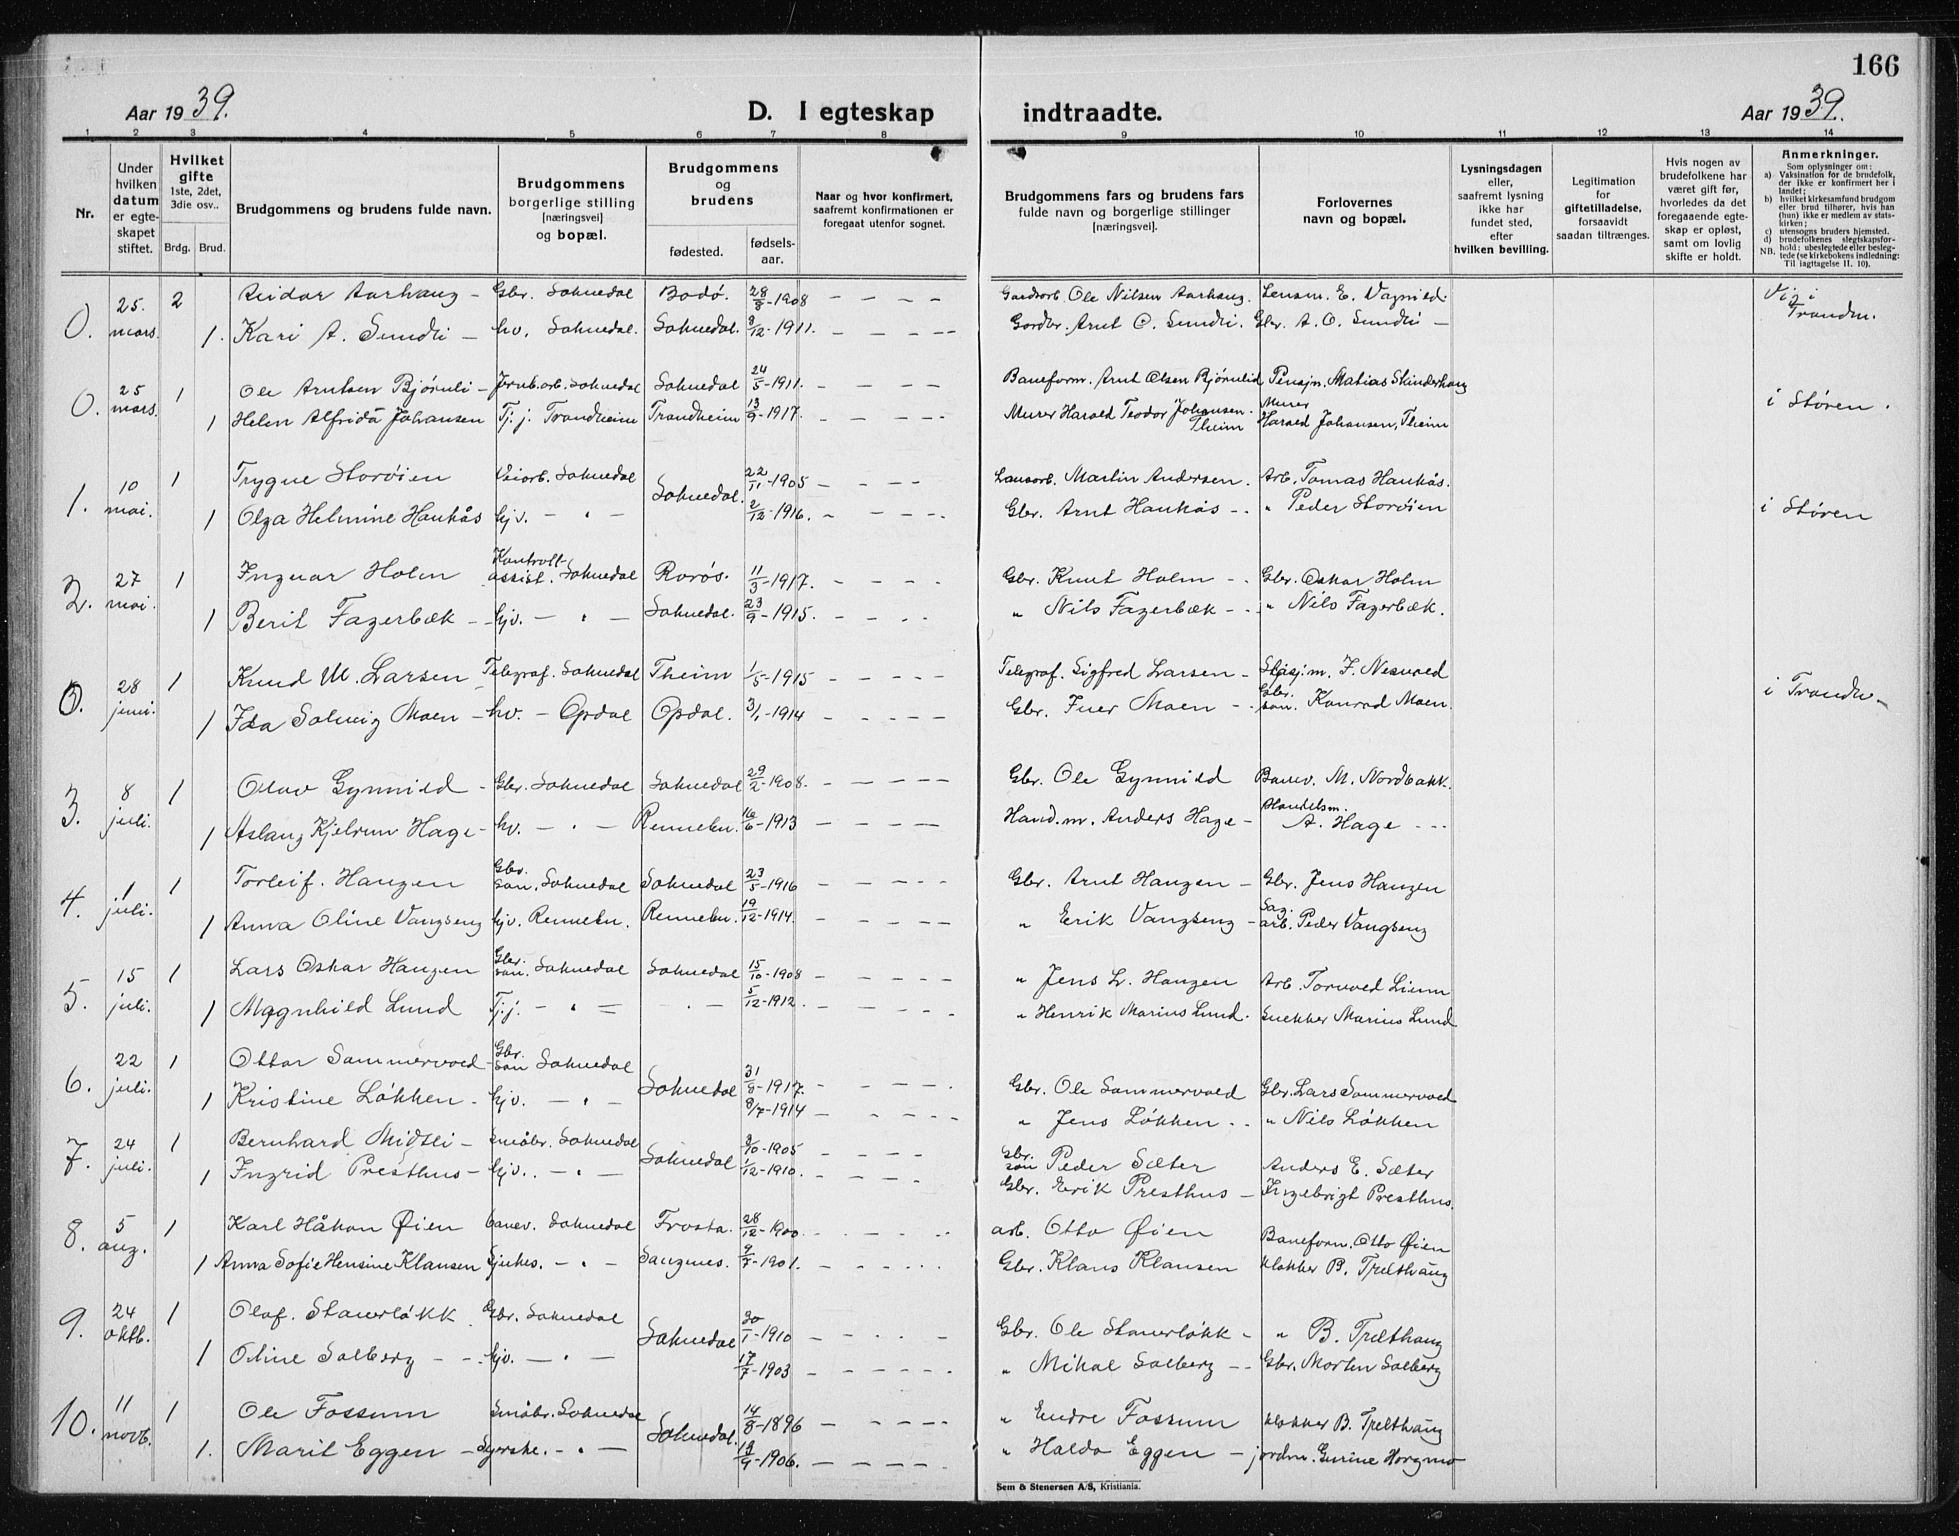 166
Aar 1939.
D. I egteskap indtraadte.
Aar 1939.
1 2 3 4 5 6 7 8 9 10 11 12 13 14
Nr.
Under hvilken datum er egteskapet stiftet.
Hvilket gifte 1ste, 2det, 3die osv..
Brdg. Brud.
Brudgommens og brudens fulde navn.
Brudgommens borgerlige stilling [næringsvei] og bopæl.
Brudgommens og brudens
fødested.
fødselsaar.
Naar og hvor konfirmert, saafremt konfirmationen er foregaat utenfor sognet.
Brudgommens fars og brudens fars fulde navn og borgerlige stillinger [næringsvei].
Forlovernes navn og bopæl.
Lysningsdagen eller, saafremt lysning ikke har fundet sted, efter hvilken bevilling.
Legitimation for giftetilladelse, forsaavidt saadan tiltrænges.
Hvis nogen av brudefolkene har været gift før, hvorledes da det foregaaende egteskap er opløst, samt om lovlig skifte er holdt.
Anmerkninger.
Som oplysninger om:
a) Vaksination for de brudefolk, der ikke er konfirmert her i landet;
b) hvilket kirkesamfund brudgom eller brud tilhører, hvis han (hun) ikke er medlem av statskirken;
c) utensogns bruders hjemsted.
d) brudefolkenes slegtskapsforhold: ubeslegtede eller beslegtede (se kirkebokens indledning: Til iagttagelse II. 10).
NB.
0. 25. mars. 2 Reidar Aarhaug - Gbr. Soknedal Bodø. 28/8-1908 - - - - Gardarb. Ole Nilsen Aarhaug. Lensm. E. Vagnild. Vig i Trondm.
1. Kari A. Sundli - hv. Soknedal. Soknedal. 3/12-1911. - - - - Gardbr. Arnt O. Sundli. Gbr. A. O. Sundli -
0. 25 mars. 1 Ole Arntsen Bjørnli - Jernb.arb. Soknedal Soknedal 24/5-1911. - - - - Baneform. Arnt Olsen Bjørnlid Pensjn. Matias Skinderhaug
1 Helen Alfrida Johansen Tj. j. Trondheim Trondheim 13/9-1917. - - - - Murer Harald Teodor Johansen. Theim Murer Harald Johansen, Theim i Støren.
1. 10 mai. 1 Trygve Storøien Veiarb. Soknedal Soknedal. 22/11-1905 - - - - Martin Andersen. Arb. Tomas Haukås.
1 Olga Helmine Haukås hjv. - " - 2/12-1916. - - - - Gbr. Arnt Haukås - - " Peder Storøien i Støren
2. 27 mai. 1 Ingvar Holm Kontroll-assist. Soknedal Rorøs. 11/3-1917. - - - - Gbr. Knut Holm - - Gbr. Oskar Holm
1 Berit Fagerbæk - hjv. - " - Soknedal. 23/9-1915. - - - - " Nils Fagerbæk - - " Nils Fagerbæk.
0. 28 juni. 1 Knud M. Larsen Telegraf. Soknedal Theim 1/5-1915 - - - - Telegraf. Sigfred Larsen - Stasj.m. J. Nesvold
1 Ida Solveig Moen - hv. - Opdal Opdal. 3/1-1914 - - - - Gbr. Iver Moen - - Gbr. søn. Konrad Moen. i Trondh.
3. 8 juli. 1 Olav Gynnild - Gbr. Soknedal Soknedal 29/2-1908. - - - - Gbr. Ole Gynnild Banev. M. Nordbakk.
1 Aslaug Kjelrun Hage - hv. - " - Rennebu. 16/6-1913 - - - - Hand.m. Anders Hage - Handelsm. A. Hage - - -
4. 1 juli. 1 Torleif. Haugen Gbr. søn. Soknedal Soknedal 23/5-1916 - - - - Gbr. Arnt Haugen - Gbr. Jens Haugen
1 Anna Oline Vangseng hjv. Rennebu. Rennebu. 19/12-1914. - - - - " Erik Vangseng - Sag. arb. Peder Vangseng
5. 15 juli. 1 Lars Oskar Haugen Gbr. søn. Soknedal Soknedal 15/10-1908 - - - - " Jens L. Haugen Arb. Torvold Lium
1 Magnhild Lund Tj. j. - " = - . - 5/12-1912. - - - - " Henrik Marius Lund. Snekker Marius Lund
6. 22 juli. 1 Ottar Sommervold - Gbr. søn Soknedal Soknedal 31/8-1917. - - - - Gbr. Ole Sommervold Gbr. Lars Sommervold
1 Kristine Løkken - hjv. - " - 8/7-1914 - - - - " Jens Løkken - - " Nils Løkken
7. 24 juli. 1 Bernhard Midtli - Småbr. Soknedal Soknedal 3/10-1905 - - - - Gbr. søn Peder Sæter Anders E. Sæter
1 Ingrid Presthus - hjv. - " - 1/12-1910. - - - - Gbr. Erik Presthus - Ingebrigt Presthus.
8. 5 aug. 1 Karl Håkon Øien banev. Soknedal Frosta. 28/12-1900. - - - - arb. Otto Øien Baneform. Otto Øien
1 Anna Sofie Hensine Klausen Sjukes. - " - Sangnes. 9/7-1901. - - - - Gbr. Klaus Klausen klokker B. Trælhaug
9. 24 oktb. 1 Olaf. Staverløkk. Gbr. Soknedal Soknedal 30/1-1910 - - - - Gbr. Ole Staverløkk - " B. Trælhaug
1 Oline Solberg - - hjv. - " - 17/7-1903 - - - - " Mikal Solberg - - Gbr. Morten Solberg
10. 11 novb. 1 Ole Fossum Småbr. Soknedal Soknedal. 14/8-1896 - - - - " Endre Fossum klokker B. Trælhaug
1. Marit Eggen - Syerske. - " - 13/9-1906. - - - - " Haldo Eggen - jordm. Gurine Horgmo
Sem & Stenersen A/S, Kristiania.